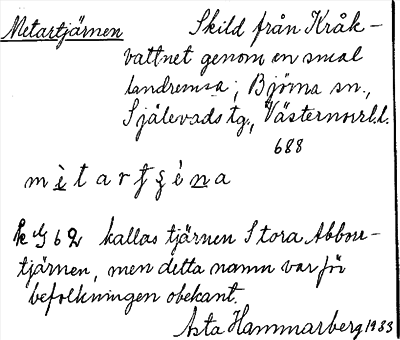 Metartjärnen Skild från Kråk-
vattnet genom en smal
landremsa; Björna sn.,
Själevads tg., Västernorrl.l.
688
mètartʃèna
kallas tjärnen Stora Abborr-
tjärnen, men detta namn var för
befolkningen obekant.
Asta Hammarberg 1933